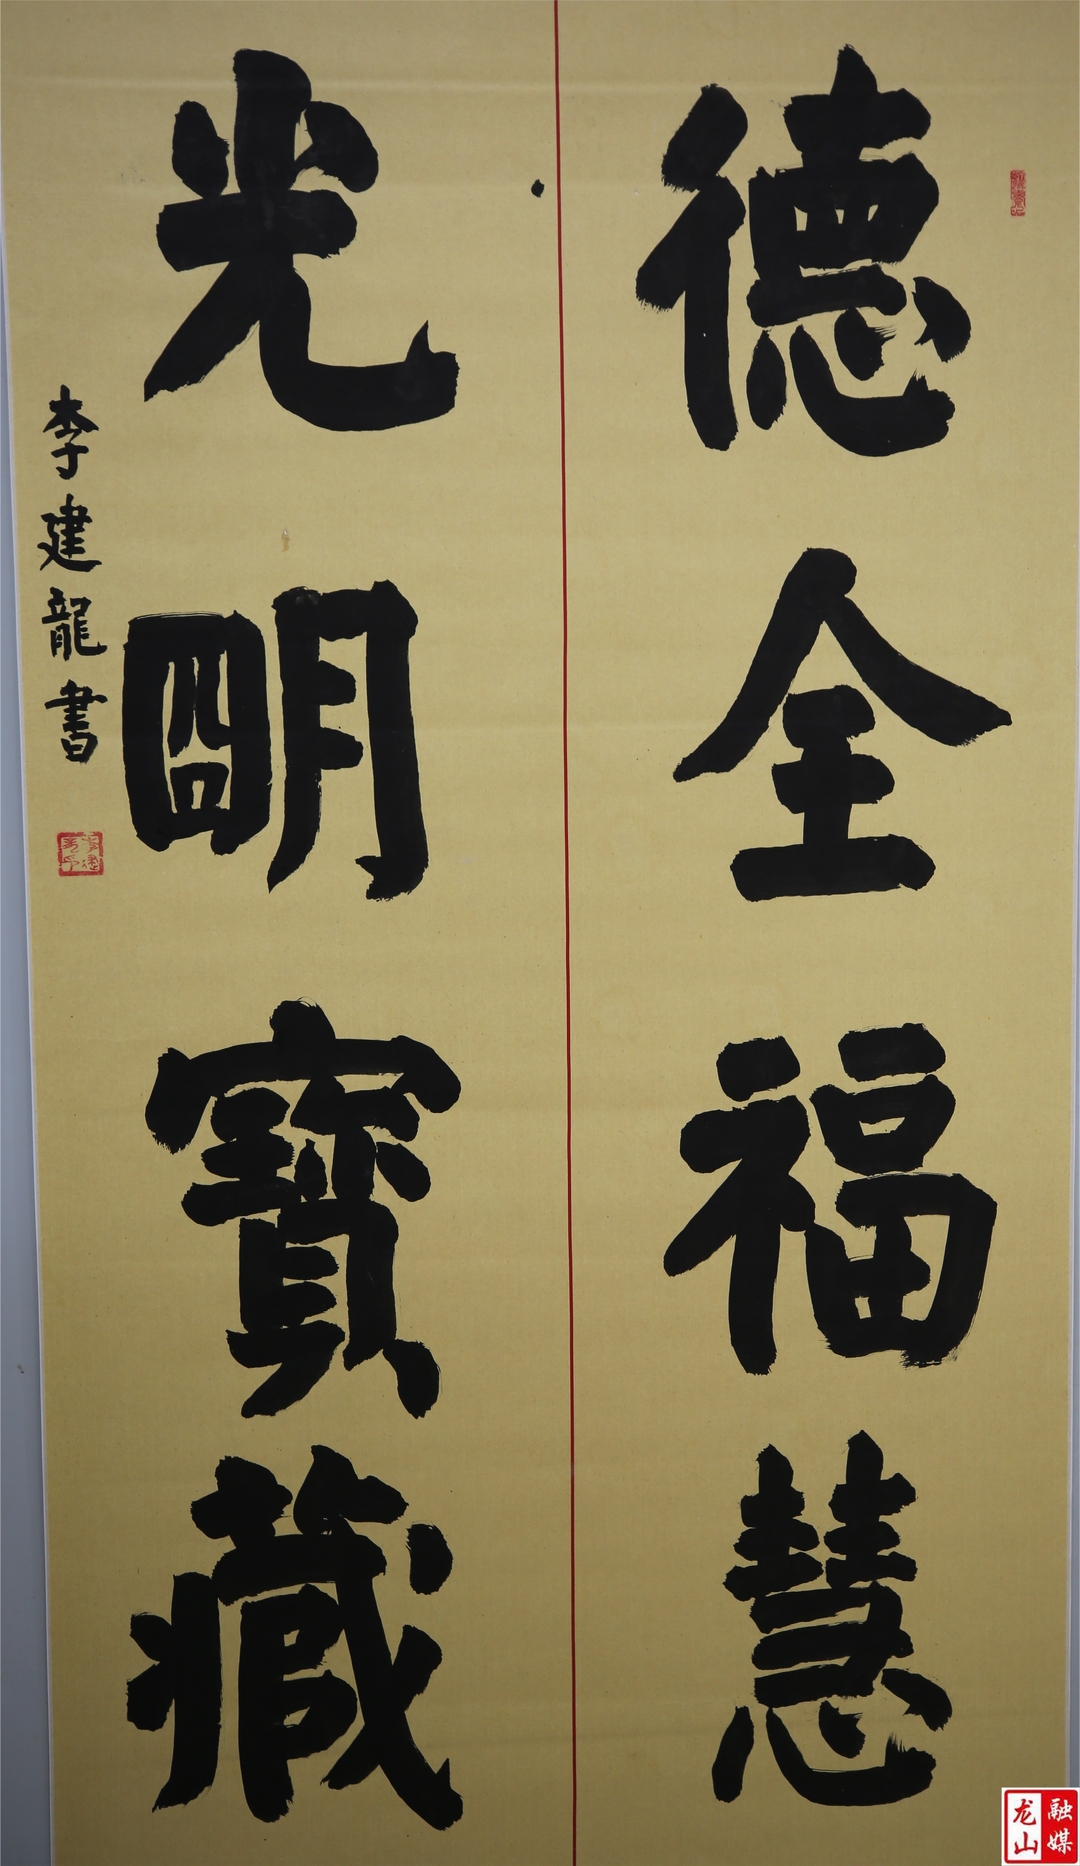 德全福慧
光明寶藏
李建龍書
融媒
龙山